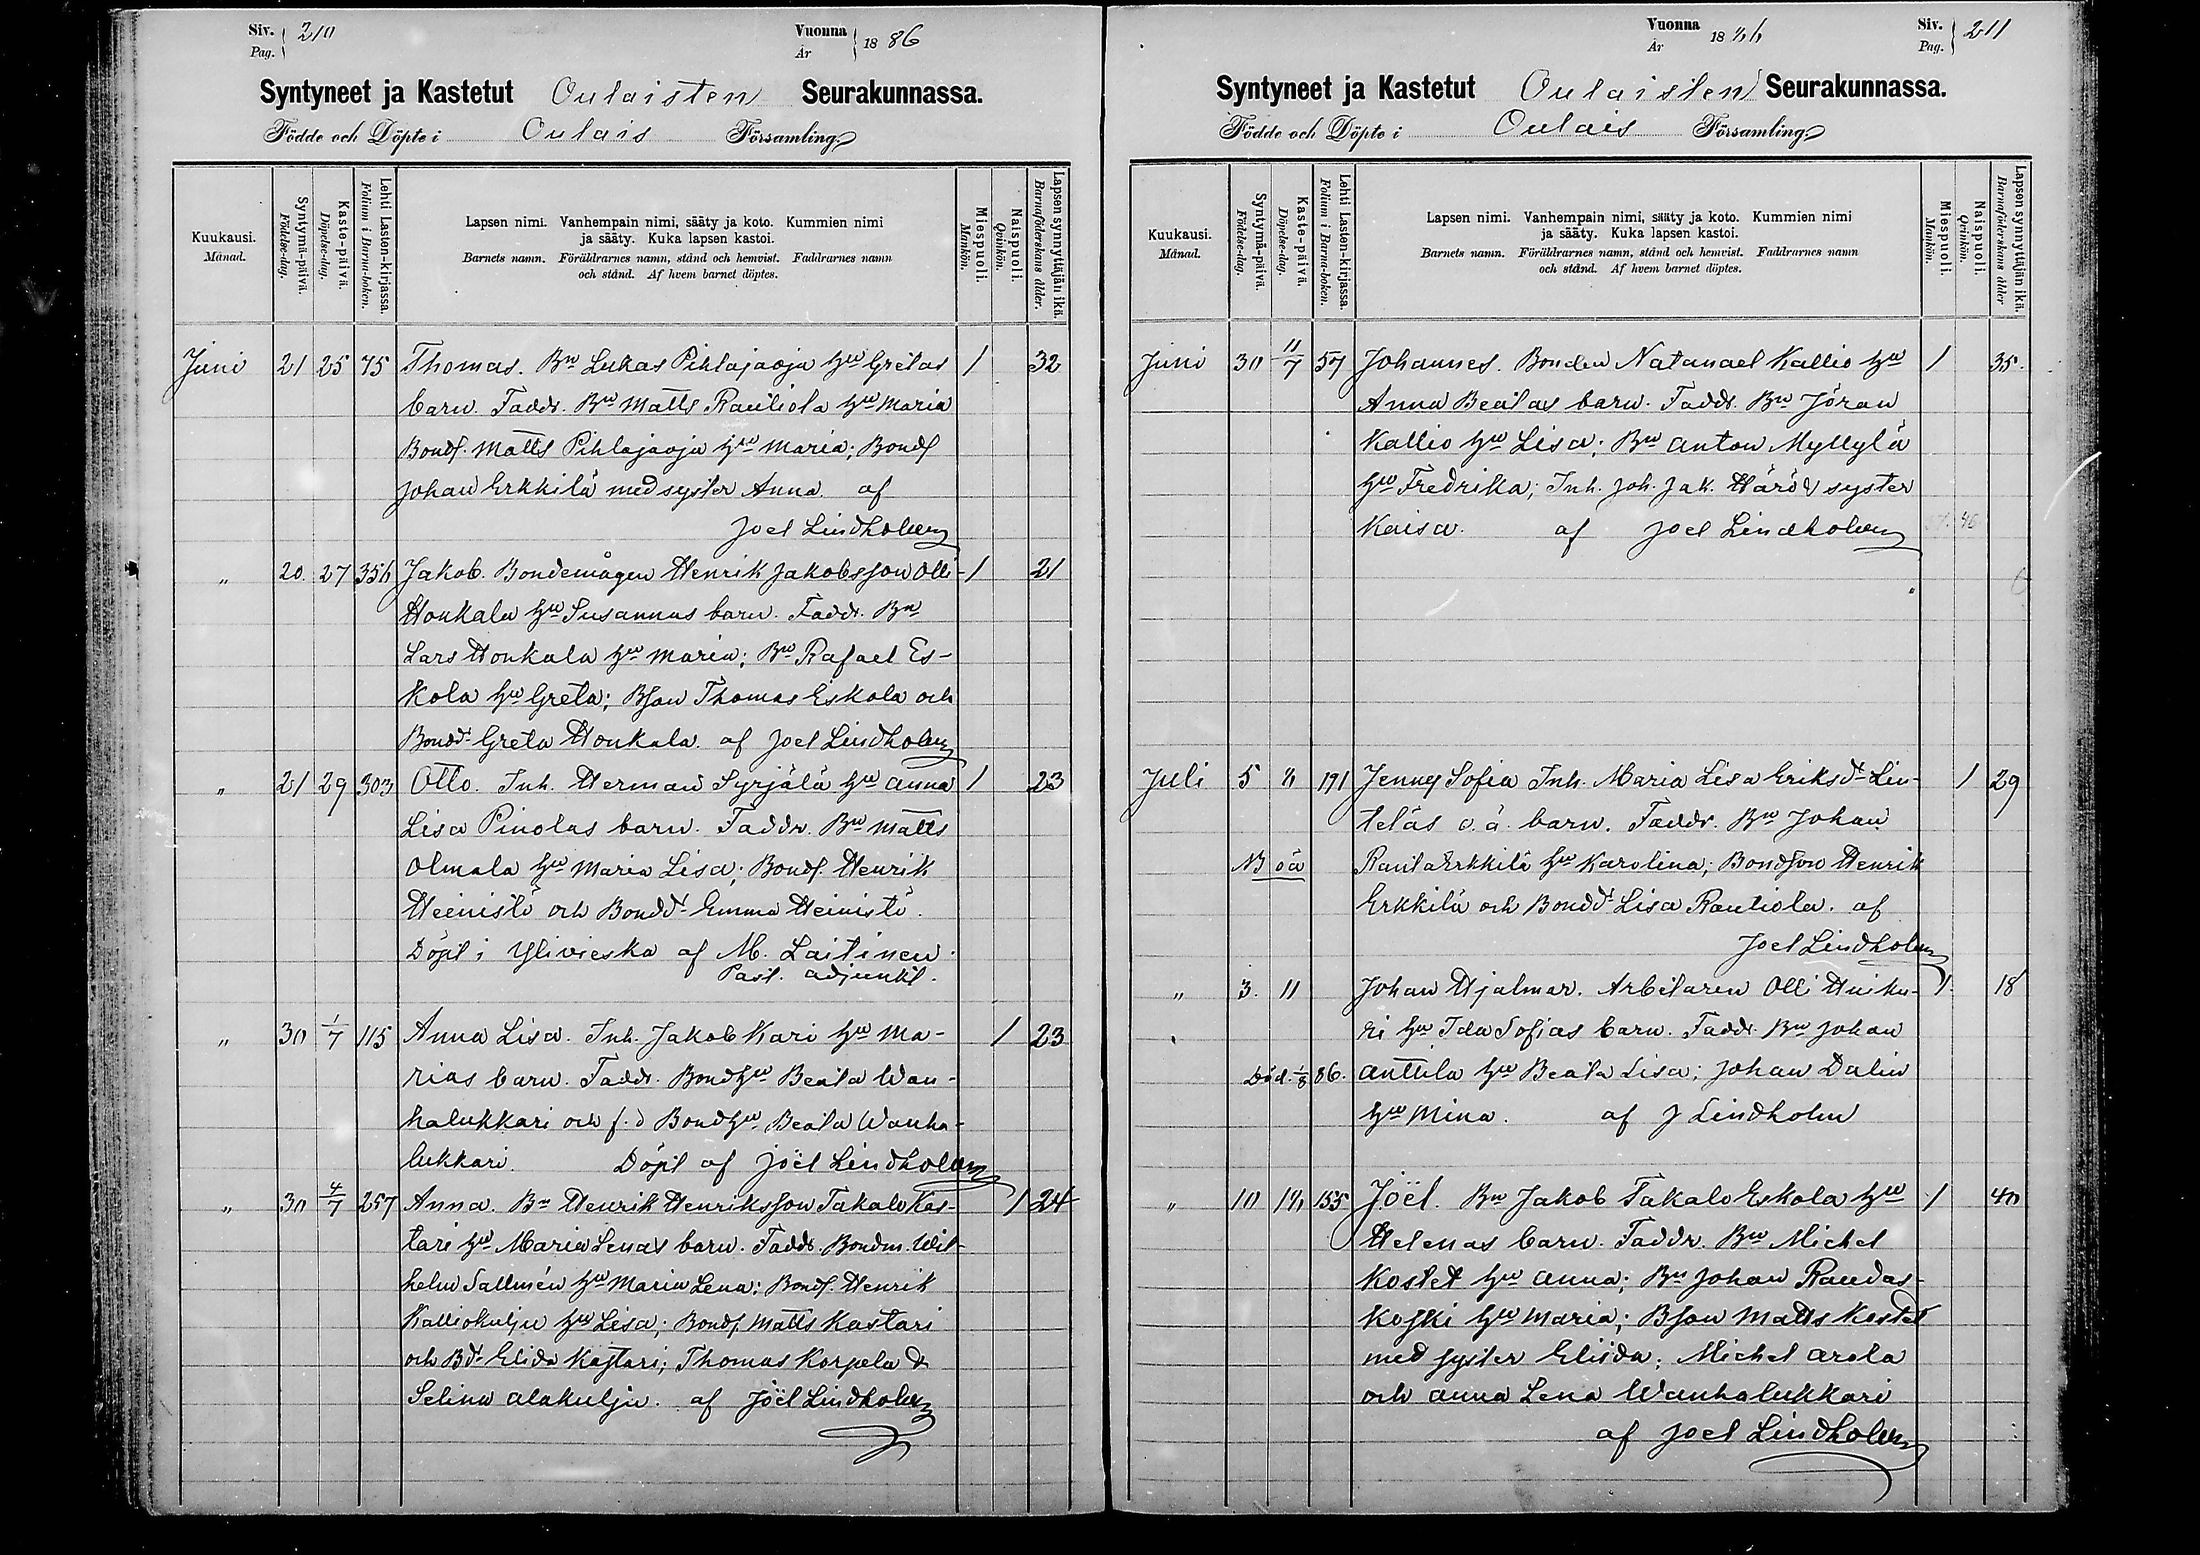 Siv. Pag. 210
Vuonna År 1886
Syntyneet ja Kastetut Oulaisten Seurakunnassa.
Födde och Döpte i Oulais Församling
Kuukausi. Månad.
Syntymä-päivä. Födelse-dag.
Kasto-päivä. Döpelse-dag.
Lehti Lasten-kirjassa. Folium i Barna-boken.
Lapsen nimi. Vanhempain nimi, sääty ja koto. Kummien nimi
ja sääty. Kuka lapsen kastoi.
Barnets namn. Föräldrarnes namn, stånd och hemvist. Faddrarnes namn
och stånd. Af hvem barnet döptes.
Miespuoli. Mankön.
Naispuoli. Qvinkön.
Lapsen synnyttäjän ikä. Barnaföderskans ålder.
Juni 21 25 75 Thomas. Bn Lukas Pihlajaoja hu Gretas 1 32
barn. Faddr. Bn Matts Rautiola hu Maria
Bondf. Matts Pihlajaoja hu Maria; Bondf
Johan Erkkilä med syster Anna. af
Joel Lindholm
" 20. 27 356 Jakob. Bondemågen Henrik Jakobsson Olli- 1 21
Honkala hu Susannas barn. Faddr. Bn
Lars Honkala hu Maria; Bn Rafael Es-
kola hu Greta; Bson Thomas Eskola och
Bondd. Greta Honkala. af Joel Lindholm
" 21 29 303 Otto. Inh. Herman Syrjälä hu Anna 1 23
Lisa Pinolas barn. Faddr. Bn Matts
Olmala hu Maria Lisa; Bondf. Henrik
Heinistö och Bondd. Emma Heinistö.
Döpt i Ylivieska af M. Laitinen.
Past. adjunkt.
" 30 1/7 115 Anna Lisa. Inh. Jakob Kari hu Ma- 1 23
rias barn. Faddr. Bondhu Beata Wan-
halukkari och f.d Bondhu. Beata Wanha-
lukkari. Döpt af Joël Lindholm
" 30 4/7 257 Anna. Bn Henrik Henriksson Takalo Kas- 1 24
tari hu Maria Lenas barn. Faddr. Bondm. Wil-
helm Sallmén hu Maria Lena; Bondf. Henrik
Kalliokulju hu Lisa; Bondf Matts Kastari
och Bd. Elida Kastari; Thomas Korpela &
Selina Alakulju. af Joël Lindholm
Vuonna År 1886
Siv. Pag. 211
Syntyneet ja Kastetut Oulaisten Seurakunnassa.
Födde och Döpte i Oulais Församling
Kuukausi. Månad.
Syntymä-päivä. Födelse-dag.
Kasto-päivä. Döpelse-dag.
Lehti Lasten-kirjassa. Folium i Barna-boken.
Lapsen nimi. Vanhempain nimi, sääty ja koto. Kummien nimi
ja sääty. Kuka lapsen kastoi.
Barnets namn. Föräldrarnes namn, stånd och hemvist. Faddrarnes namn
och stånd. Af hvem barnet döptes.
Miespuoli. Mankön.
Naispuoli. Qvinkön.
Lapsen synnyttäjän ikä. Barnaföderskans ålder.
Juni 30 11/7 57 Johannes. Bonden Natanael Kallio hu 1 35.
Anna Beatas barn. Faddr. Bn Jöran
Kallio hu Lisa; Bn Anton Myllylä
hu Fredrika; Inh. Joh. Jak. Härö & syster
Kaisa. af Joel Lindholm
Juli 5 6 191 Jenny Sofia Inh. Maria Lisa Eriksd. Lin- 1 29
teläs o.ä. barn. Faddr. Bn Johan
NB oä RautaErkkilä hu Karolina; Bondson Henrik
Erkkilä och Bondd. Lisa Rautiola. af
Joel Lindholm
" 3. 11 Johan Hjalmar. Arbetaren Olli Huiku- 1. 18
ri hu Ida Sofias barn. Faddr. Bn Johan
Död. 1/8 86. Anttila hu Beata Lisa; Johan Dalin
hu Mina. af J Lindholm
" 10 16 155 Joël. Bn Jakob Takalo Eskola hu 1 40
Helenas barn. Faddr. Bn Michel
Kostet hu Anna; Bn Johan Raudas-
koski hu Maria; Bson Matts Kostet
med syster Eliida; Michel Arola
och Anna Lena Wanhalukkari
af Joel Lindholm